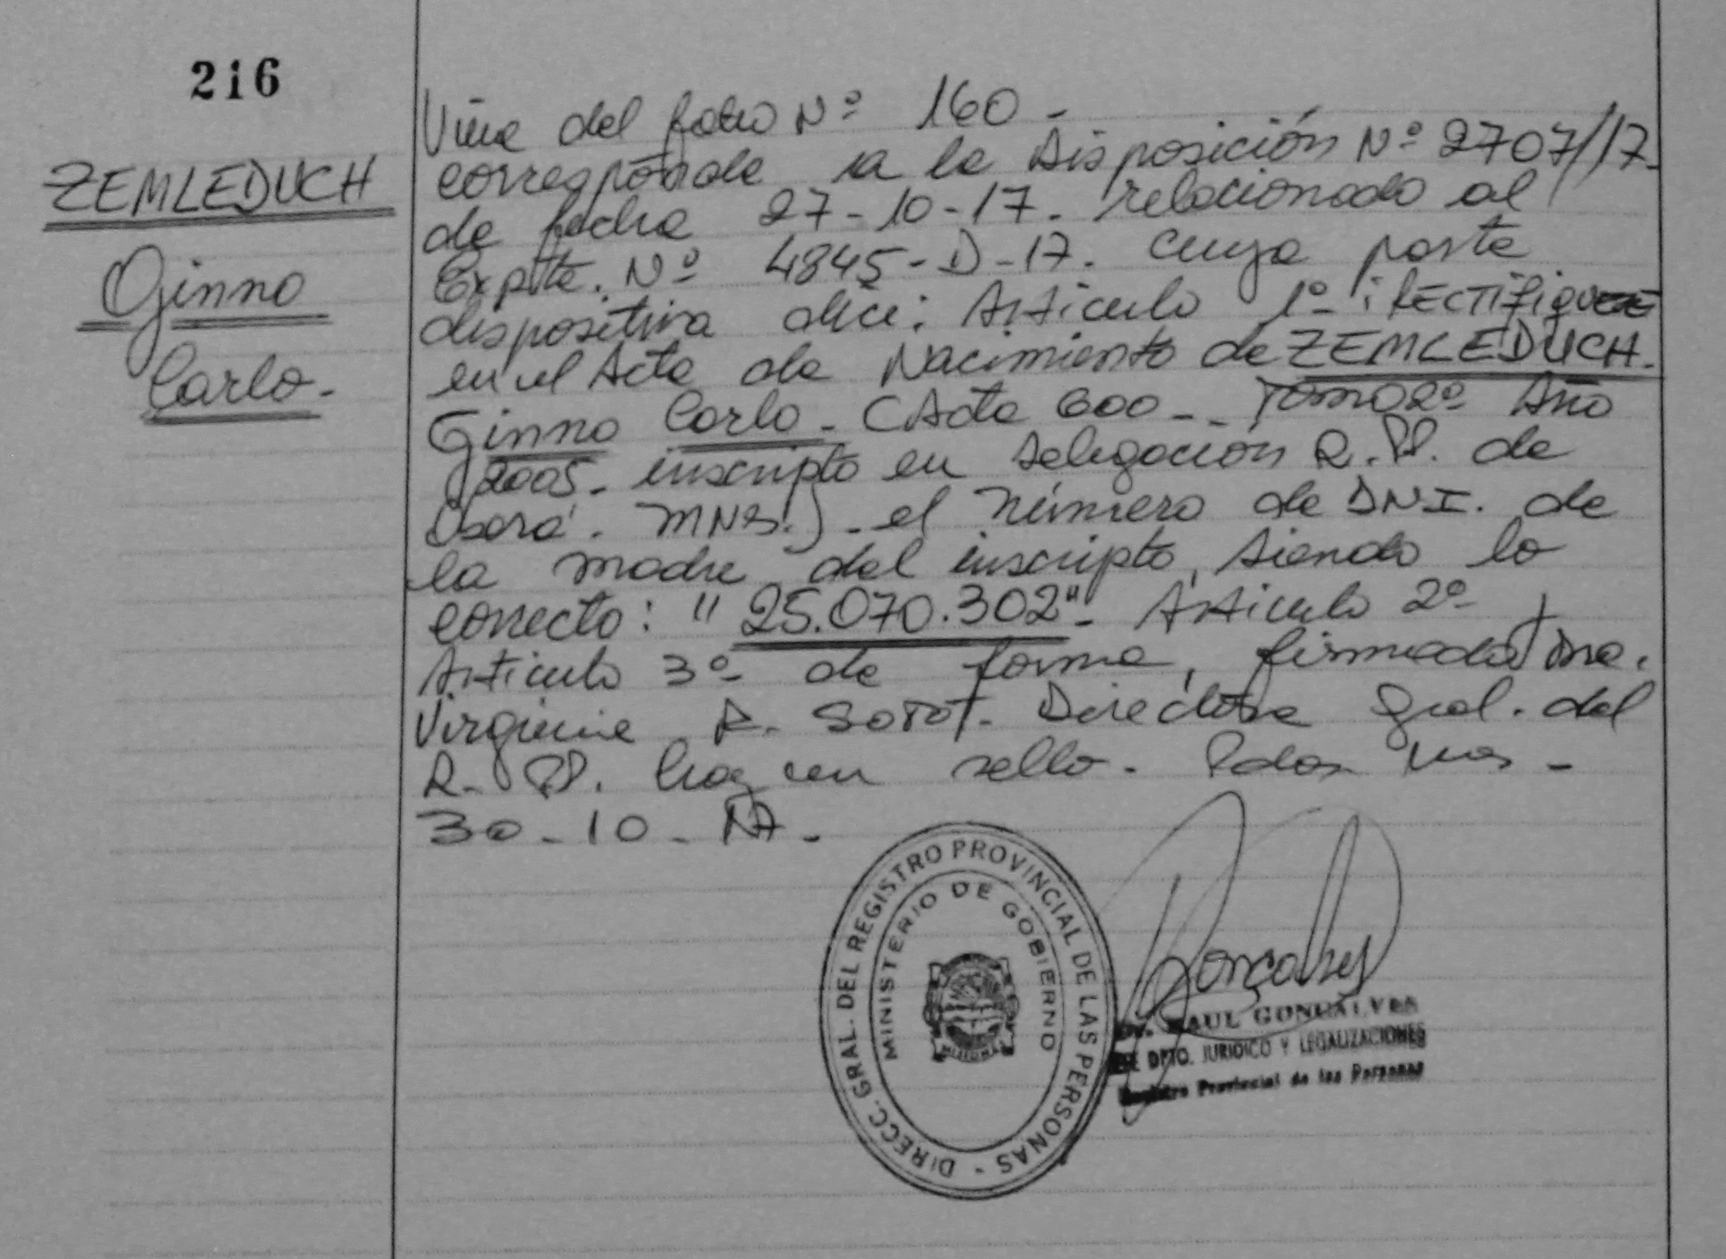 216
ZEMLEDUCH
Ginno
Carlo.-
Viene del folio Nº 160 -
corresponde a la Disposición Nº 2707/17-
de fecha 27-10-17. relacionado al
Expte. Nº 4845-D-17. cuya parte
dispositiva dice: Artículo 1º-: RECTIFIQUESE
en el Acta de Nacimiento de ZEMLEDUCH.
Ginno Carlo - (Acta 600 - Tomo 2º Año
2005 - inscripto en Delegación R.P. de
Oberá. MNES.) - el número de DNI. de
la madre del inscripto, siendo lo
correcto: "25.070.302"- Artículo 2º y
Artículo 3º de forma, firmada Dra.
Virginia R. SOTO - Directora Gral. del
R.P. hay un sello. Pdas Mnes -
30-10-17-
DIRECC. GRAL. DEL REGISTRO PROVINCIAL DE LAS PERSONAS -
MINISTERIO DE GOBIERNO
MISIONES
Dr. RAUL GONCALVES
DPTO. JURIDICO Y LEGALIZACIONES
Registro Provincial de las Personas